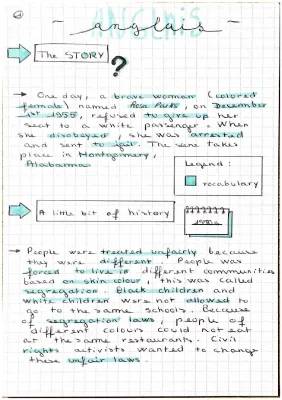 ANGLAIS
- anglais -
The STORY ?
→ One day, a brave woman (colored
female) named Rosa Parks, on December
1st 1955, refused to give up her
seat to a white passenger. When
she disobeyed, she was arrested
and sent to jail. The scene takes
place in Montgomery,
Alabama.
Legend :
vocabulary
A little bit of history
1950s
→ People were treated unfairly because
they were different. People was
forced to live in different communities
based on skin colour, this was called
segregation. Black children and
white children were not allowed to
go to the same schools. Because
of segregation laws, people of
different colours could not eat
at the same restaurants. Civil
rights activists wanted to change
these unfair laws.